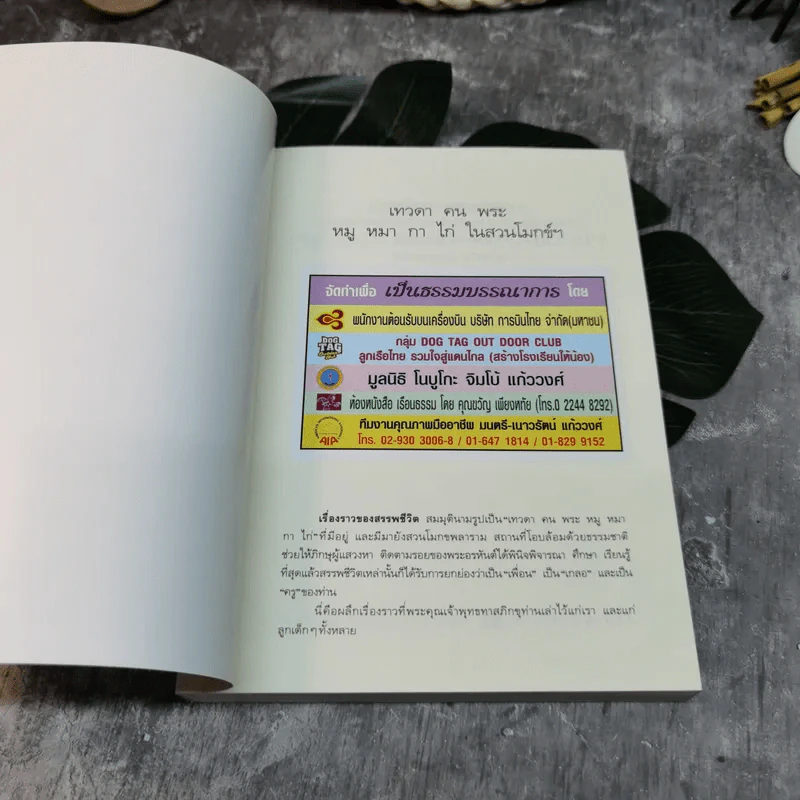 เทวดา คน พระ
หมู หมา กา ไก่ ในสวนโมกข์ฯ
จัดทำเพื่อ เป็นธรรมบรรณาการ โดย
พนักงานต้อนรับบนเครื่องบิน บริษัท การบินไทย จำกัด(มหาชน)
DOG TAG
กลุ่ม DOG TAG OUT DOOR CLUB
ลูกเรือไทย รวมใจสู่แดนไกล (สร้างโรงเรียนให้น้อง)
มูลนิธิ โนบูโกะ จิมโบ้ แก้ววงศ์
ห้องหนังสือ เรือนธรรม โดย คุณขวัญ เพียงหทัย (โทร.0 2244 8292)
AIA
ทีมงานคุณภาพมืออาชีพ มนตรี-เนาวรัตน์ แก้ววงศ์
โทร. 02-930 3006-8 / 01-647 1814 / 01-829 9152
เรื่องราวของสรรพชีวิต สมมุตินามรูปเป็น"เทวดา คน พระ หมู หมา
กา ไก่"ที่มีอยู่ และมีมายังสวนโมกขพลาราม สถานที่โอบล้อมด้วยธรรมชาติ
ช่วยให้ภิกษุผู้แสวงหา ติดตามรอยของพระอรหันต์ได้พินิจพิจารณา ศึกษา เรียนรู้
ที่สุดแล้วสรรพชีวิตเหล่านั้นก็ได้รับการยกย่องว่าเป็น"เพื่อน" เป็น"เกลอ" และเป็น
"ครู"ของท่าน
นี่คือผลึกเรื่องราวที่พระคุณเจ้าพุทธทาสภิกขุท่านเล่าไว้แก่เรา และแก่
ลูกเด็กๆทั้งหลาย